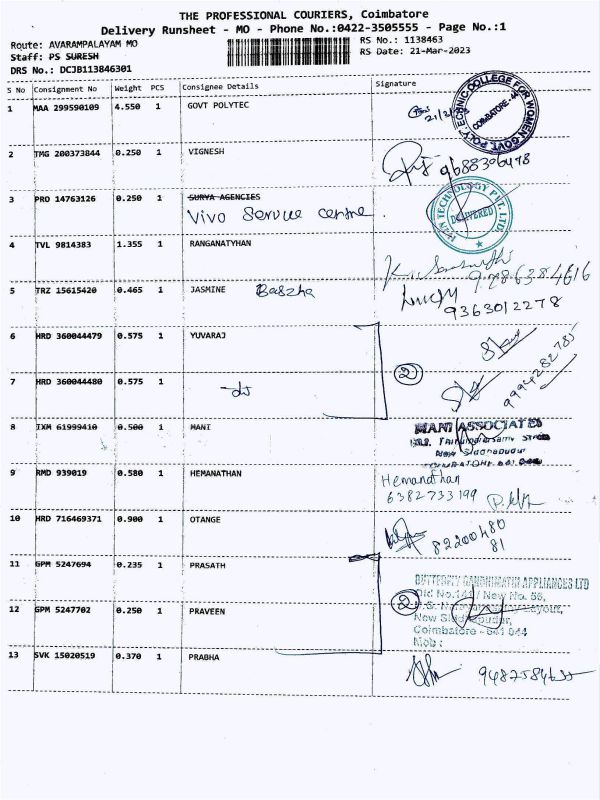 THE PROFESSIONAL COURIERS, Coimbatore
Delivery Runsheet - MO - Phone No.:0422-3505555 - Page No.:1
Route: AVARAMPALAYAM MO
RS No.: 1138463
Staff: PS SURESH
RS Date: 21-Mar-2023
DRS No.: DCJB113846301
S No Consignment No Weight PCS Consignee Details Signature
1 MAA 299590109 4.550 1 GOVT POLYTEC
POLYTECHNIC COLLEGE FOR WOMEN GOVT.
COIMBATORE-44
2 TMG 200373844 0.250 1 VIGNESH
9688306478
3 PRO 14763126 0.250 1 SURYA AGENCIES
Vivo Service centre
TECHNOLOGY PVT. LTD.
DELIVERED
4 TVL 9814383 1.355 1 RANGANATYHAN
5 TRZ 15615420 0.465 1 JASMINE
9363012278
6 HRD 360044479 0.575 1 YUVARAJ
2
7 HRD 360044480 0.575 1
8 IXM 61999410 0.500 1 MANI
MANI ASSOCIATES
9 RMD 939019 0.580 1 HEMANATHAN
Hemanathan
6382733199
10 HRD 716469371 0.900 1 OTANGE
82200480
81
11 GPM 5247694 0.235 1 PRASATH
BUTTERFLY GANDHIMATHI APPLIANCES LTD
12 GPM 5247702 0.250 1 PRAVEEN
2
New Siddhapudur,
Coimbatore - 641 044
Mob :
13 SVK 15020519 0.370 1 PRABHA